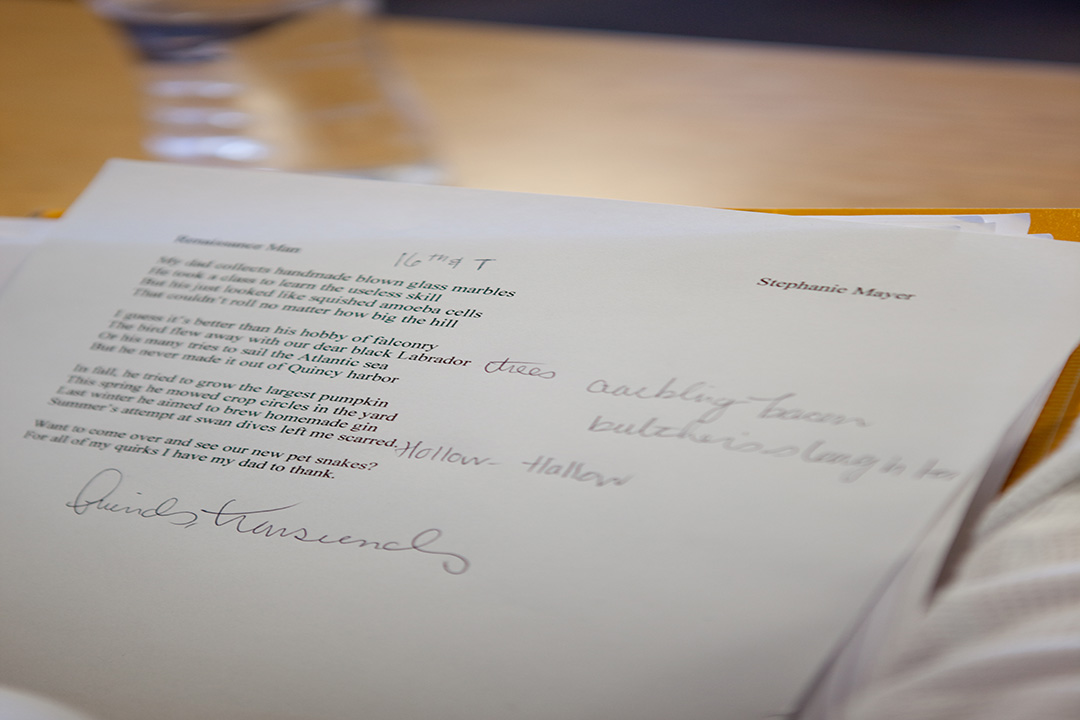 Renaissance Man
16th & T
Stephanie Mayer
My dad collects handmade blown glass marbles
He took a class to learn the useless skill
But his just looked like squished amoeba cells
That couldn't roll no matter how big the hill
I guess it's better than his hobby of falconry
The bird flew away with our dear black Labrador
Or his many tries to sail the Atlantic sea
But he never made it out of Quincy harbor
trees
bacon
butcher's slang in
In fall, he tried to grow the largest pumpkin
This spring he mowed crop circles in the yard
Last winter he aimed to brew homemade gin
Summer's attempt at swan dives left me scarred.
Hollow- Hallow
Want to come over and see our new pet snakes?
For all of my quirks I have my dad to thank.